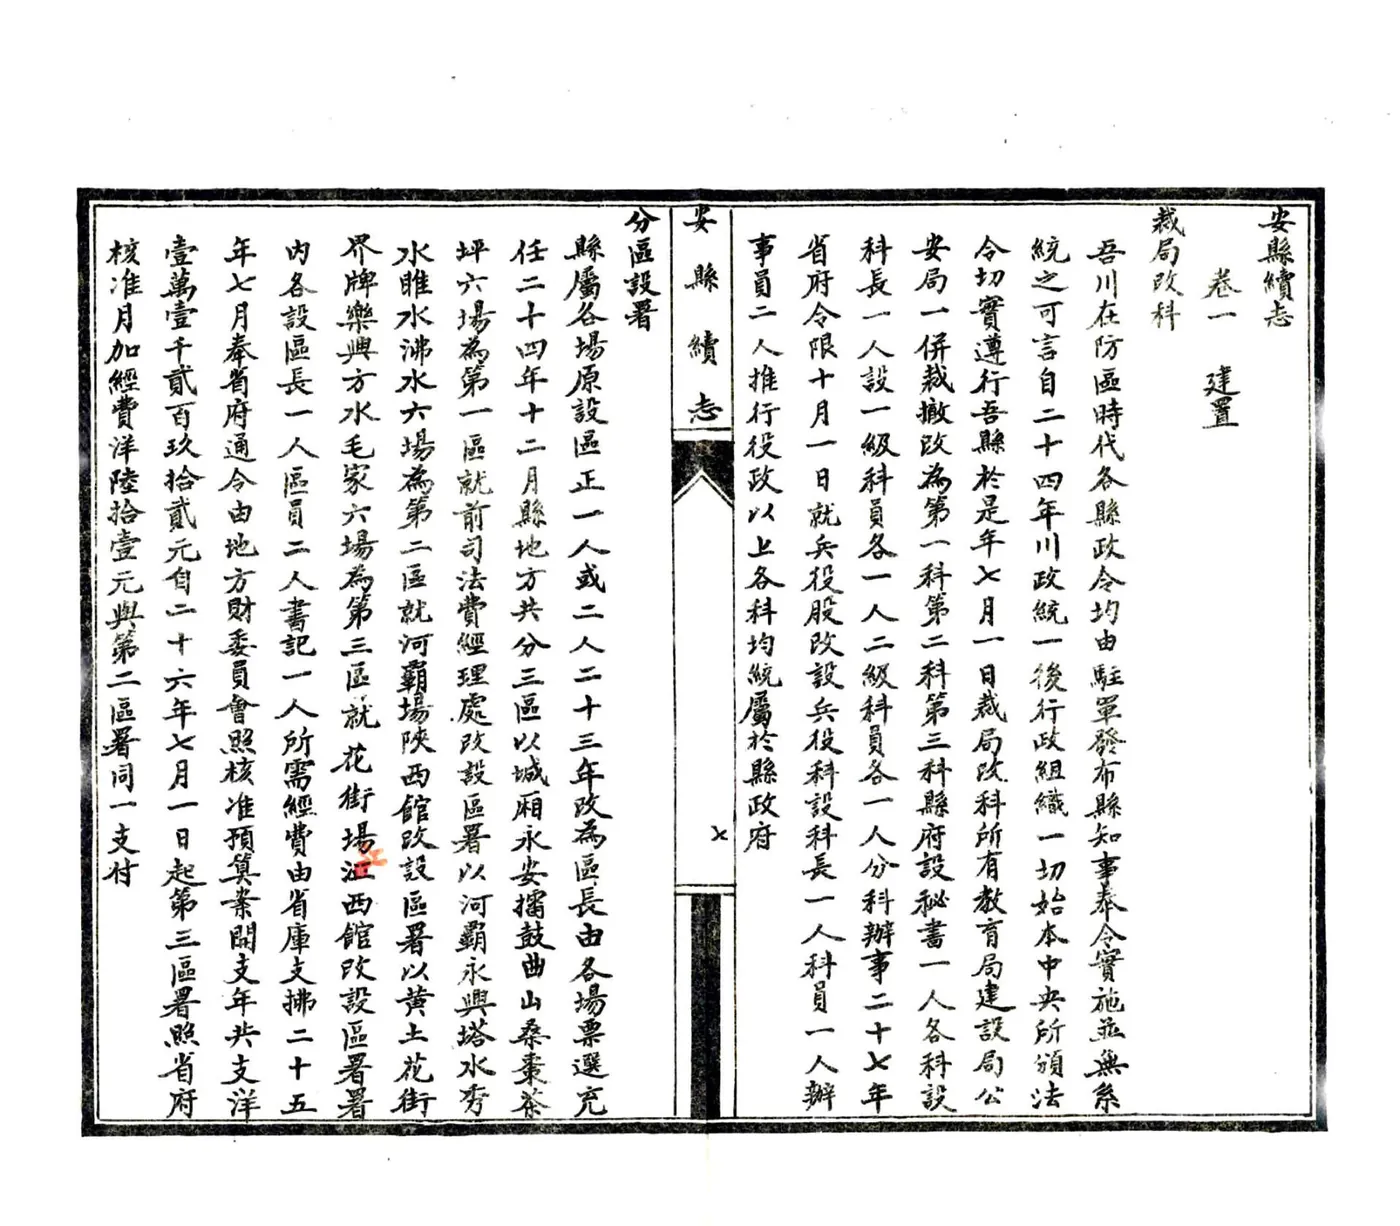 安縣續志
卷一　建置
裁局改科
吾川在防區時代各縣政令均由駐軍發布縣知事奉令實施並無系
統之可言自二十四年川政統一後行政組織一切始本中央所頒法
令切實遵行吾縣於是年七月一日裁局改科所有教育局建設局公
安局一併裁撤改為第一科第二科第三科縣府設秘書一人各科設
科長一人設一級科員各一人二級科員各一人分科辦事二十七年
省府令限十月一日就兵役股改設兵役科設科長一人科員一人辦
事員二人推行役政以上各科均統屬於縣政府
安縣續志
七
分區設署
縣屬各場原設區正一人或二人二十三年改為區長由各場票選充
任二十四年十二月縣地方共分三區以城廂永安擂鼓曲山桑棗茶
坪六場為第一區就前司法費經理處改設區署以河霸永興塔水秀
水雎水沸水六場為第二區就河霸場陝西館改設區署以黄土花街
界牌樂興方水毛家六場為第三區就花街場江西館改設區署署
江
內各設區長一人區員二人書記一人所需經費由省庫支拂二十五
年七月奉省府通令由地方財委員會照核准預算案開支年共支洋
壹萬壹千貳百玖拾貳元自二十六年七月一日起第三區署照省府
核准月加經費洋陸拾壹元與第二區署同一支付